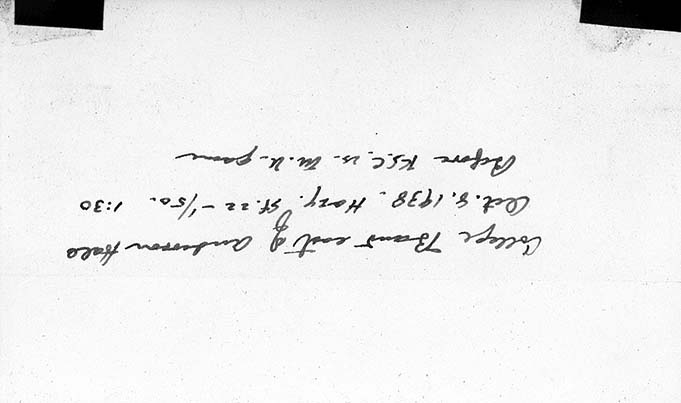 College Band east of Anderson Hall
Oct. 8, 1938. Hazy. St. 22 - 1/50. 1:30
Before K.S.C. vs. M.U. game